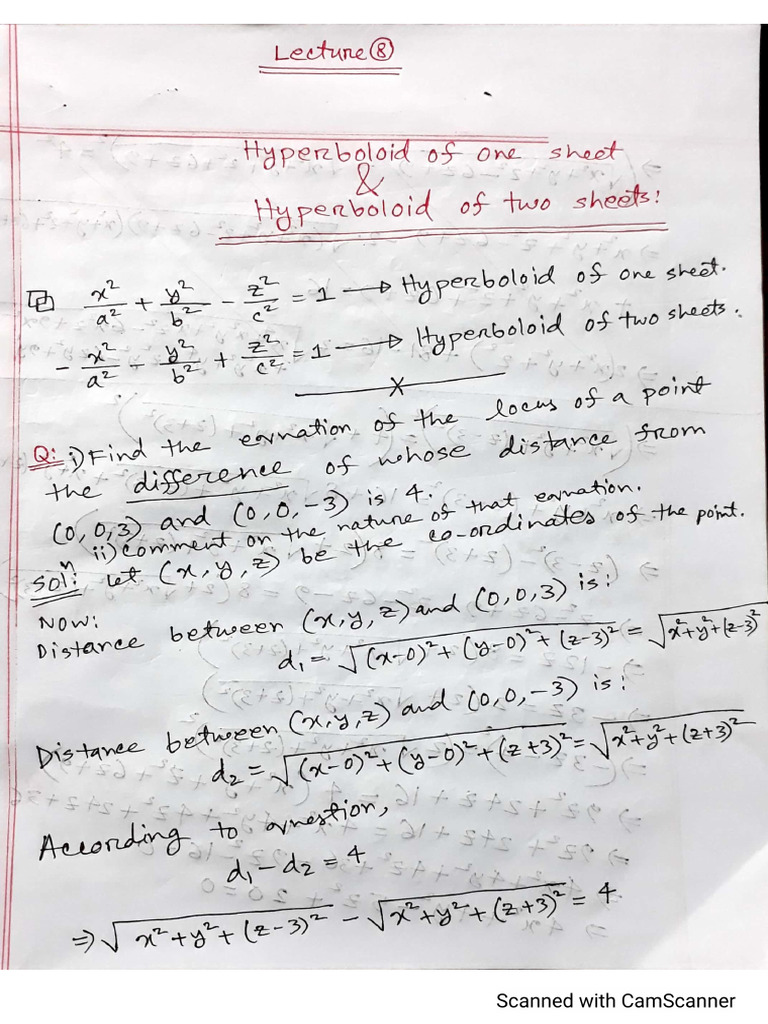 Lecture ⑧
Hyperboloid of one sheet
&
Hyperboloid of two sheets:
x²/a² + y²/b² - z²/c² = 1 → Hyperboloid of one sheet.
- x²/a² - y²/b² + z²/c² = 1 → Hyperboloid of two sheets.
X
Q: i) Find the equation of the locus of a point
the difference of whose distance from
(0,0,3) and (0,0,-3) is 4.
ii) comment on the nature of that equation.
Solⁿ: Let (x,y,z) be the co-ordinates of the point.
Now:
Distance between (x,y,z) and (0,0,3) is:
d₁ = √((x-0)²+(y-0)²+(z-3)²) = √(x²+y²+(z-3)²)
Distance between (x,y,z) and (0,0,-3) is:
d₂ = √((x-0)²+(y-0)²+(z+3)²) = √(x²+y²+(z+3)²)
According to question,
d₁ - d₂ = 4
⇒ √(x²+y²+(z-3)²) - √(x²+y²+(z+3)²) = 4
Scanned with CamScanner